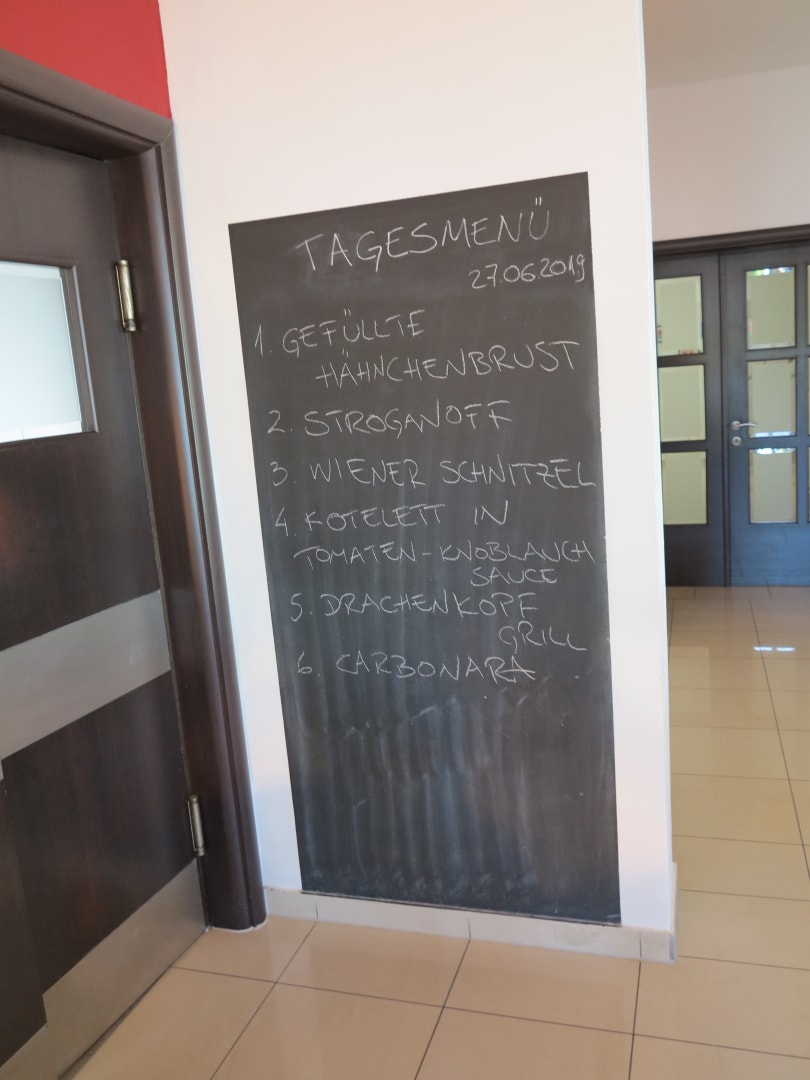 TAGESMENÜ
27.06.2019
1. GEFÜLLTE
HÄHNCHENBRUST
2. STROGANOFF
3. WIENER SCHNITZEL
4. KOTELETT IN
TOMATEN-KNOBLAUCH
SAUCE
5. DRACHENKOPF
GRILL
6. CARBONARA